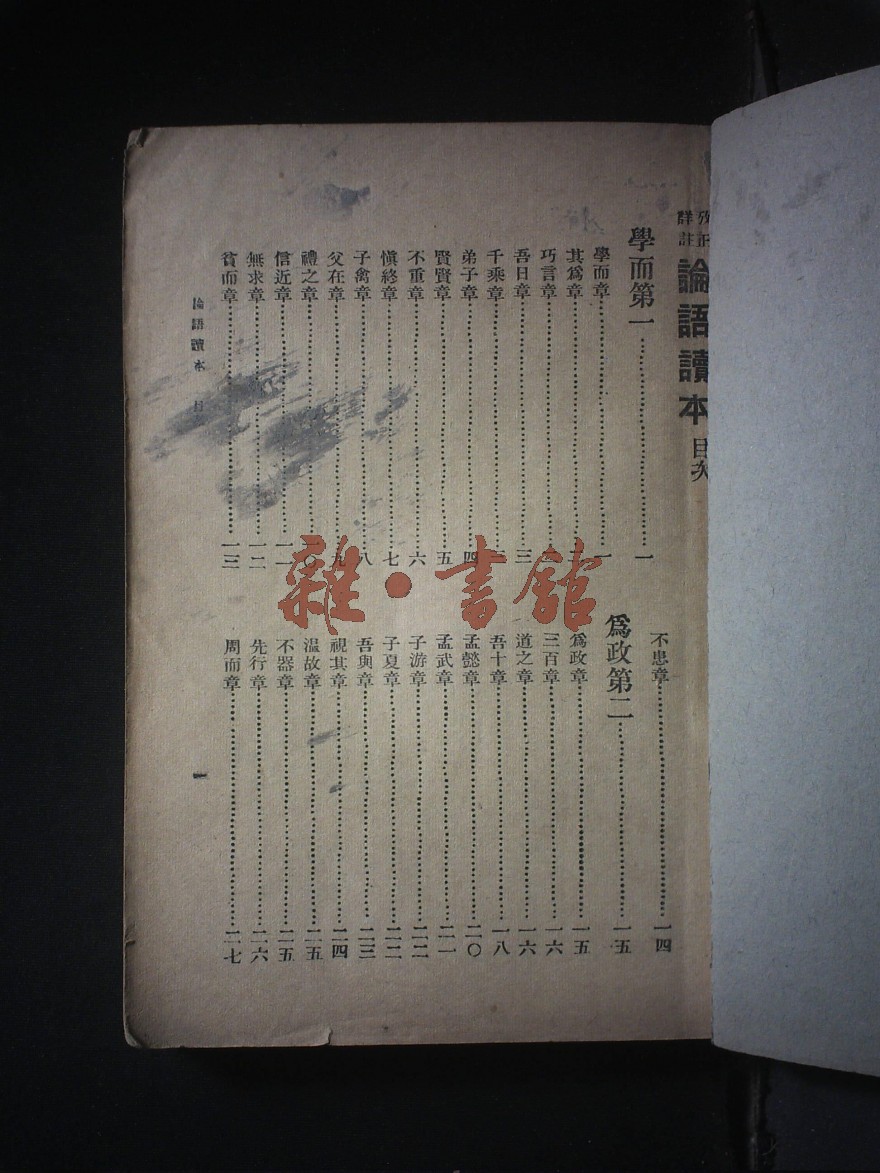 攷正
詳註
論語讀本 目次
學而第一 一
學而章 一
其爲章
巧言章
吾日章 三
千乘章
弟子章 四
賢賢章 五
不重章 六
愼終章 七
子禽章 八
父在章 九
禮之章 一〇
信近章 一一
無求章 一二
貧而章 一三
不患章 一四
爲政第二 一五
爲政章 一五
三百章 一六
道之章 一六
吾十章 一八
孟懿章 二〇
孟武章 二一
子游章 二二
子夏章 二二
吾與章 二三
視其章 二四
温故章 二五
不器章 二五
先行章 二六
周而章 二七
論語讀本 目
一
雜·書館